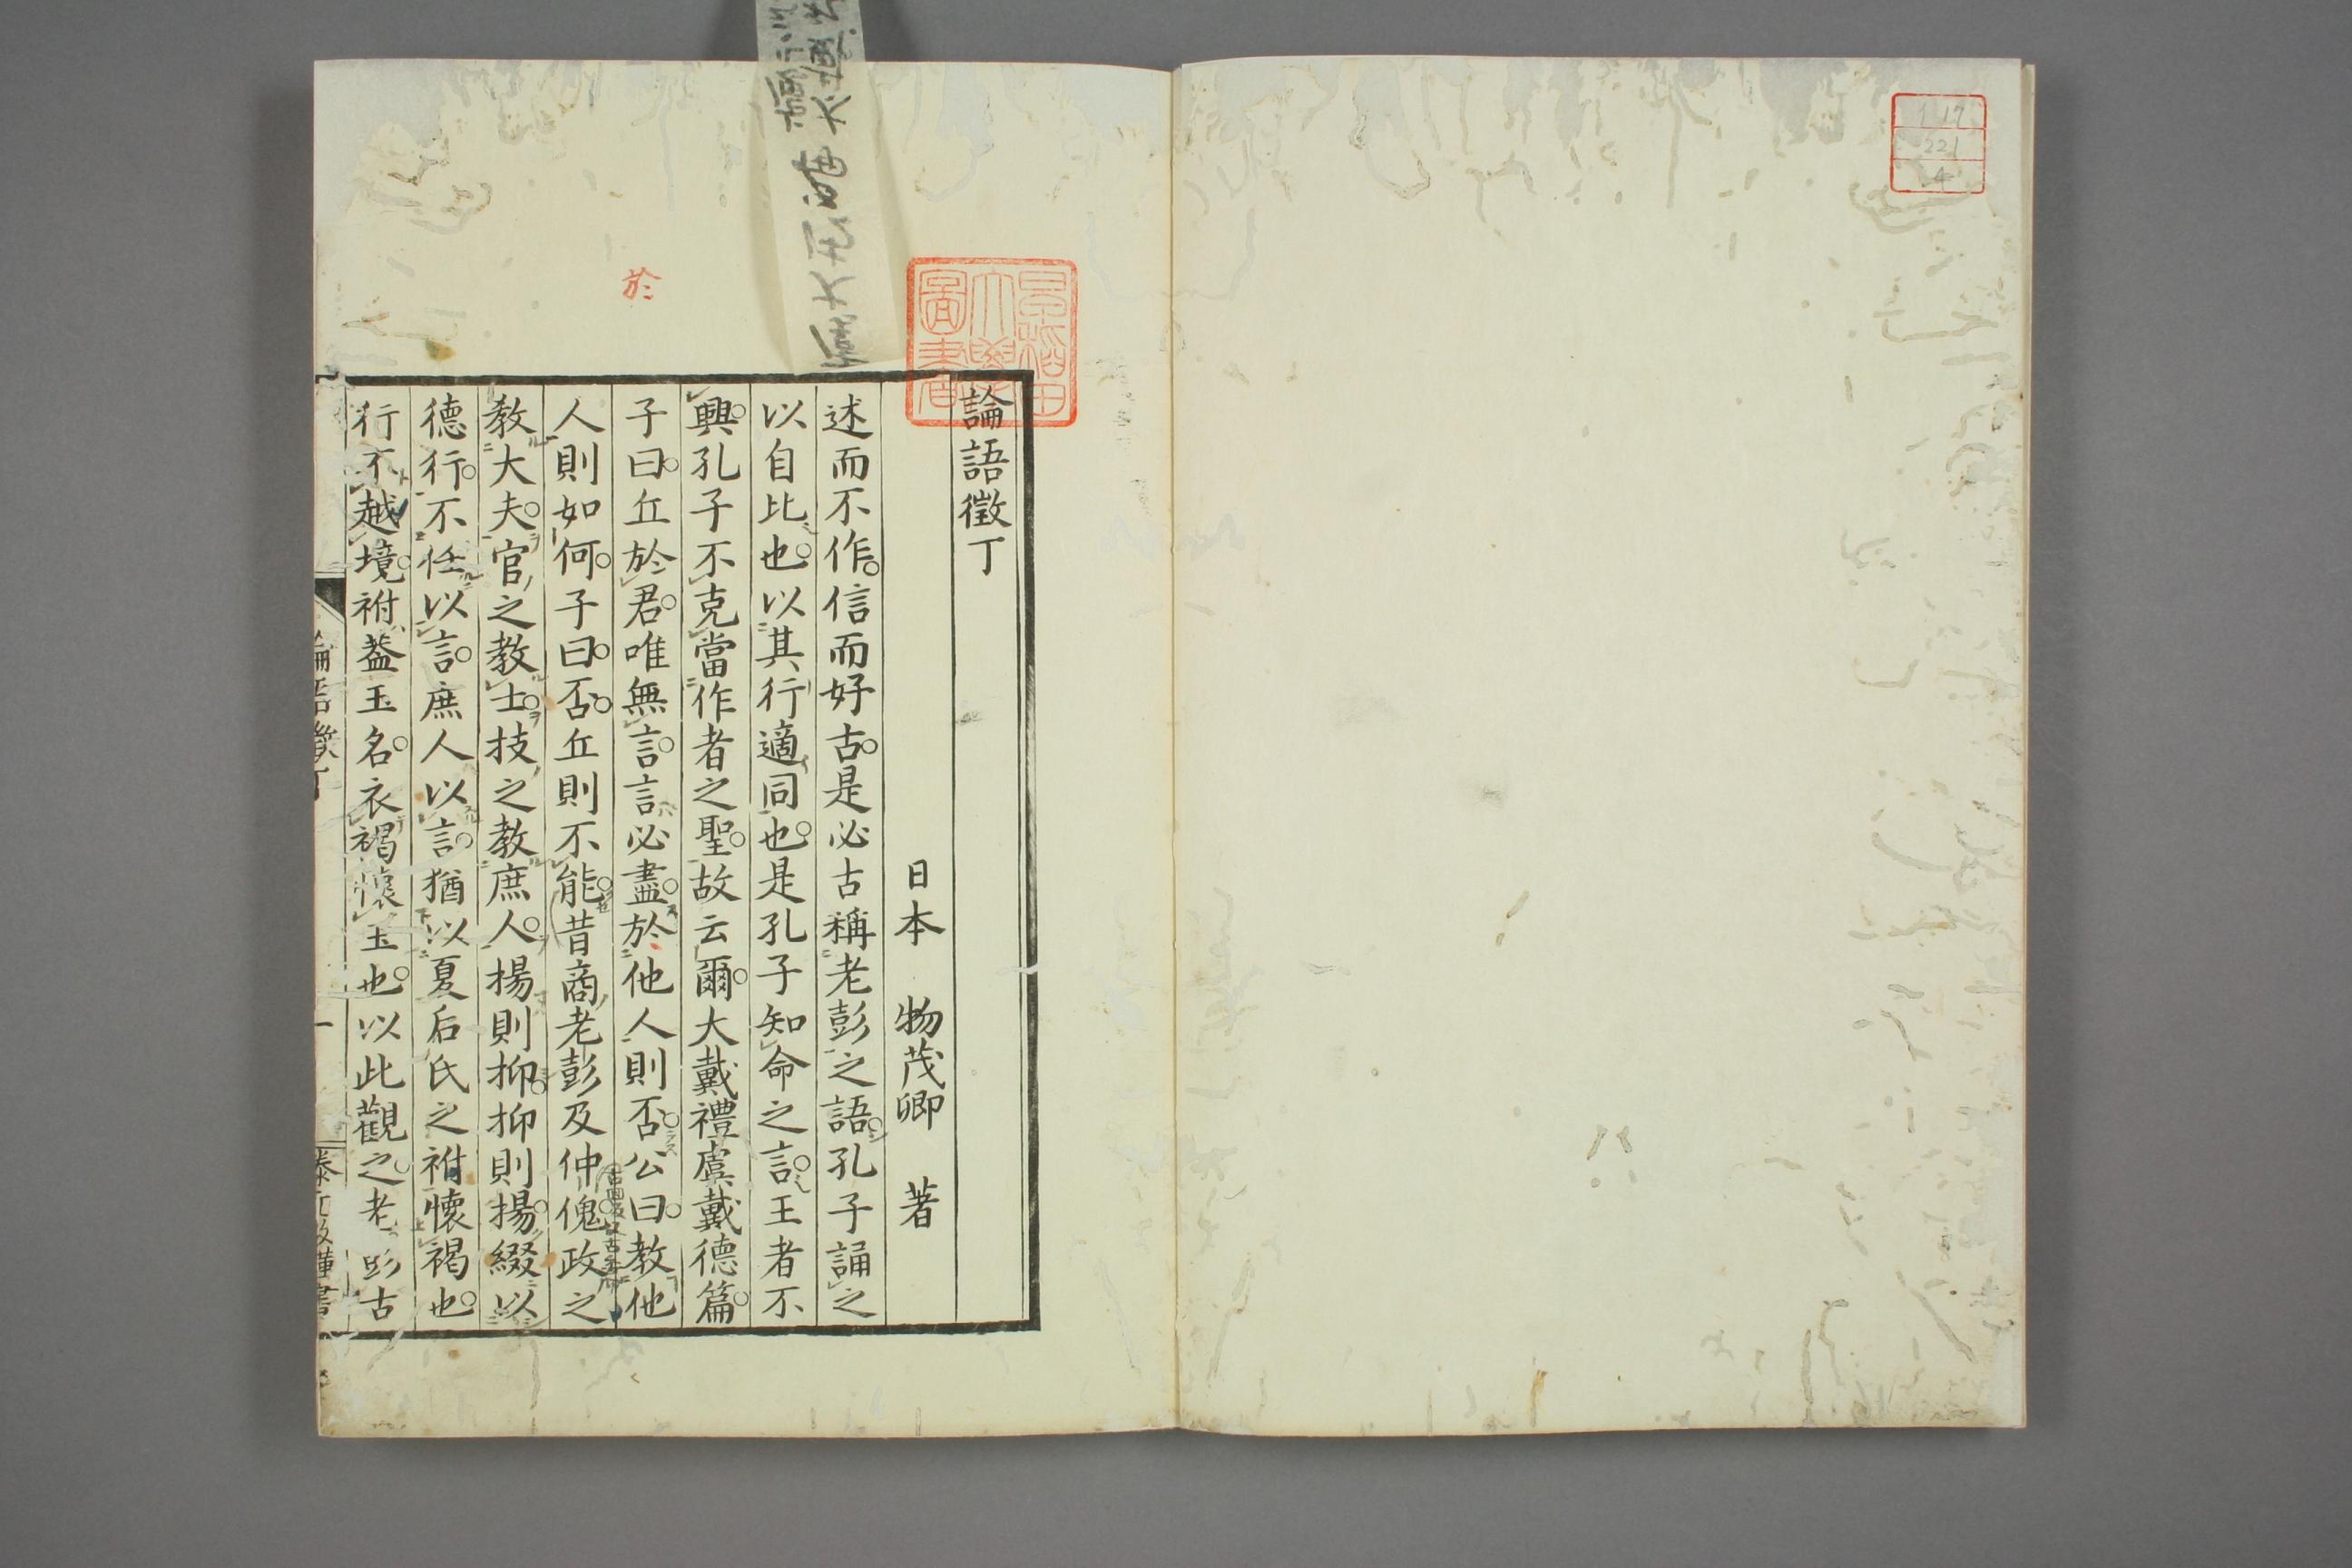 117
221
4
早稲田大學圖書
論語徵丁
日本 物茂卿 著
述而不作信而好古是必古稱老彭之語孔子誦之
以自比也以其行適同也是孔子知命之言王者不
興孔子不克當作者之聖故云爾大戴禮虞戴德篇
子曰丘於君唯無言言必盡於他人則否公曰教他
人則如何子曰否丘則不能昔商老彭及仲傀政之
教大夫官之教士技之教庶人揚則抑抑則揚綴以
德行不任以言庶人以言猶以夏后氏之祔懷褐也
行不越境祔蓋玉名衣褐懷玉也以此觀之老彭古
於
論語徵丁
一